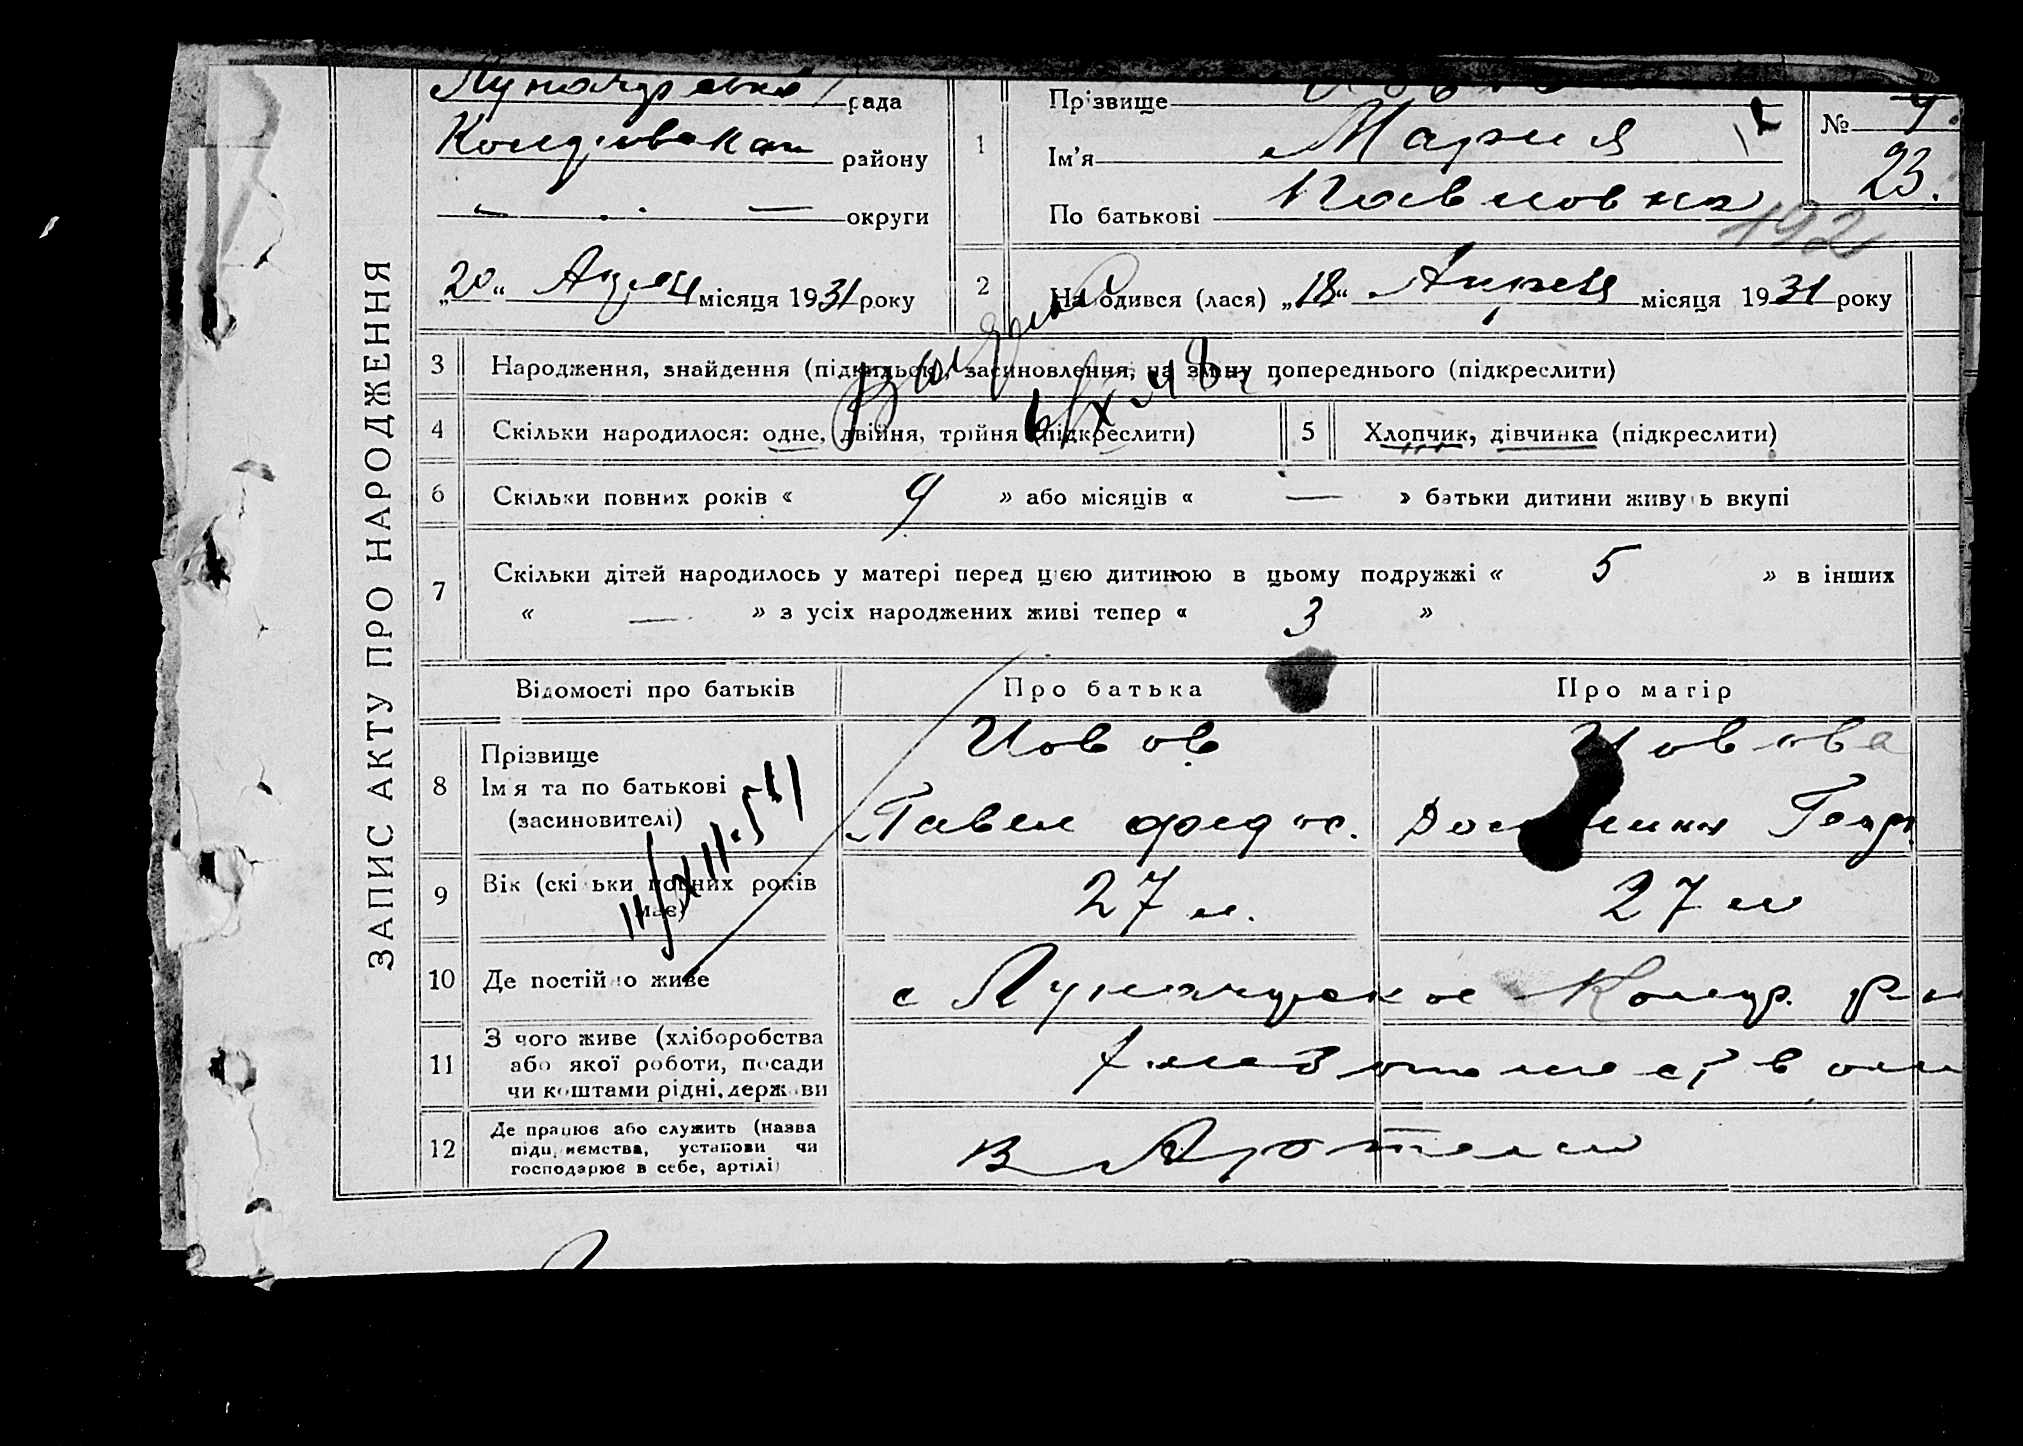 ЗАПИС АКТУ ПРО НАРОДЖЕННЯ
рада
району
округи
„20“ Апреля місяця 1931 року
1
Прізвище
Ім'я Мария
По батькові Павловна
№
23.
192
2
Народився (лася) „18“ Апреля місяця 1931 року
3 Народження, знайдення (підкидьок), засиновлення, на зміну попереднього (підкреслити)
4 Скільки народилося: одне, двійня, трійня (підкреслити)
5 Хлопчик, дівчинка (підкреслити)
6 Скільки повних років « 9 » або місяців « — » батьки дитини живуть вкупі
7 Скільки дітей народилось у матері перед цією дитиною в цьому подружжі « 5 » в інших
« — » з усіх народжених живі тепер « 3 »
Відомості про батьків Про батька Про матір
8 Прізвище
Ім'я та по батькові
(засиновителі)
Иовов
Павел Федос.
Иовова
Геор
9 Вік (скільки повних років має)
27 л.
27 л
10 Де постійно живе
с Луначарское р-н
11 З чого живе (хліборобства
або якої роботи, посади
чи коштами рідні, держави
12 Де працює або служить (назва
підприємства, установи чи
господарює в себе, артілі)
В Артели